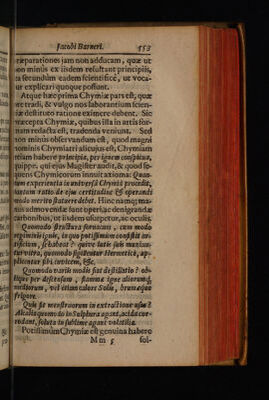 Jacobi Barneri. 553
ræparationes jam non adducam, quæ ut
non minus ex iisdem resultant principiis,
ta secundùm eadem scientificè, ut voca-
ur explicari quoque possunt.
Atque hæc prima Chymiæ pars est, quæ
ræ tradi, & vulgo nos laborantium scien-
iæ destituto ratione eximere debent. Sic
ræcepta Chymiæ, quibus illa in artis for-
nam redacta est, tradenda veniunt. Sed
non minùs observandum est, quod magni
nominis Chymiatri alicujus est, Chymiam
etiam habere principia, per ignem conspicua,
quippe, qui ejus Magister audit, & quod se-
quens Chymicorum innuit axioma: Quan-
tum experientia in universâ Chymiâ procedit,
tantum ratio de ejus certitudine & operandi
modo meritò statuere debet. Hinc namq; ma-
nus admovendæ sunt operi, ac denigrandæ
carbonibus, ut iisdem usurpetur, ac oculis.
Quomodo structura fornacum, cum modo
regiminis ignis, in quo potissimùm consistit ar-
tificium, se habeat? quive lutis suis muniun-
tur vitra, quomodo sigillentur Hermeticè, ap-
plicentur sibi invicem, &c.
Quomodo variis modis fiat destillatio? ob-
liquè per descensum, flamma igne aliorumq;
meditorum, vel etiam calore Solis, brumaque
frigore.
Quis sit menstruorum in extractione usus?
Alcalia quomodo in Sulphura agant, acida cor-
rodant, soluta in sublime agant volatilia.
Potissimùm Chymiæ est genuina habere
M m 5 sol-